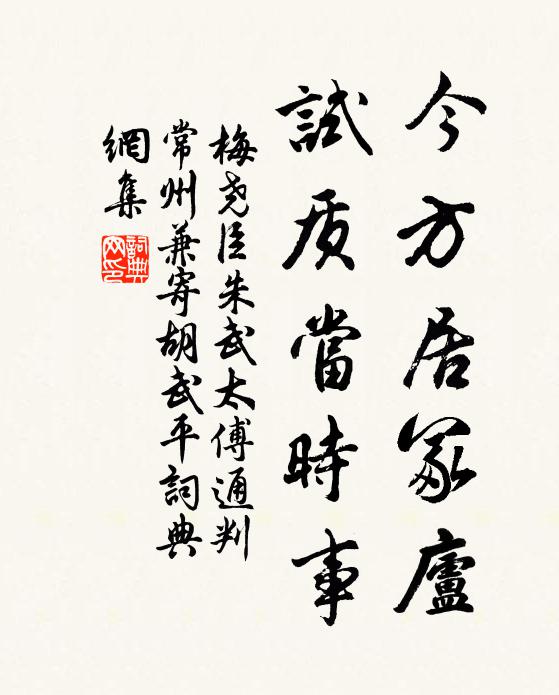 今方居冢廬
試质當時事
梅尧臣朱武太傅通判
常州兼寄胡武平詞典
網集
詞典网印